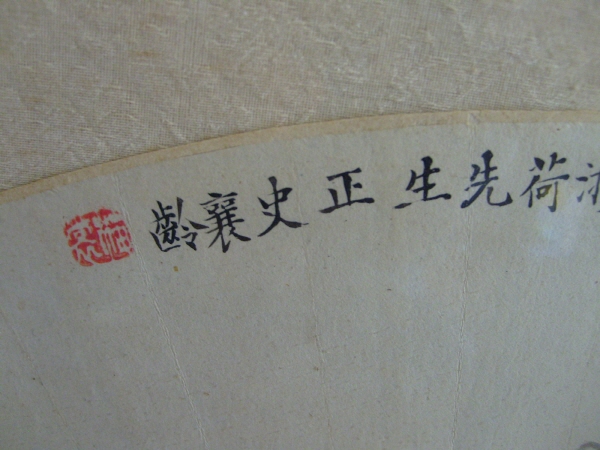 荷先生正史襄齡